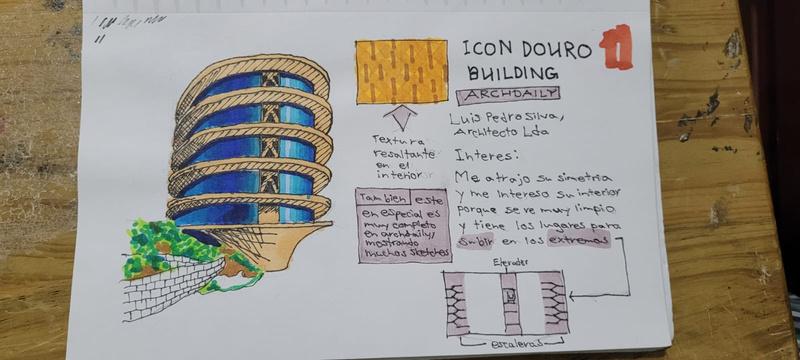 ICON DOURO
BUILDING
1
ARCHDAILY
Luis Pedro Silva,
Architecto Lda
Textura
resaltante
en el
interior
Interes:
Me atrajo su simetria
y me intereso su interior
porque se ve muy limpio
y tiene los lugares para
subir en los extremos
Tambien este
en especial es
muy completo
en archdaily,
mostrando
muchos sketches
Elevador
escaleras